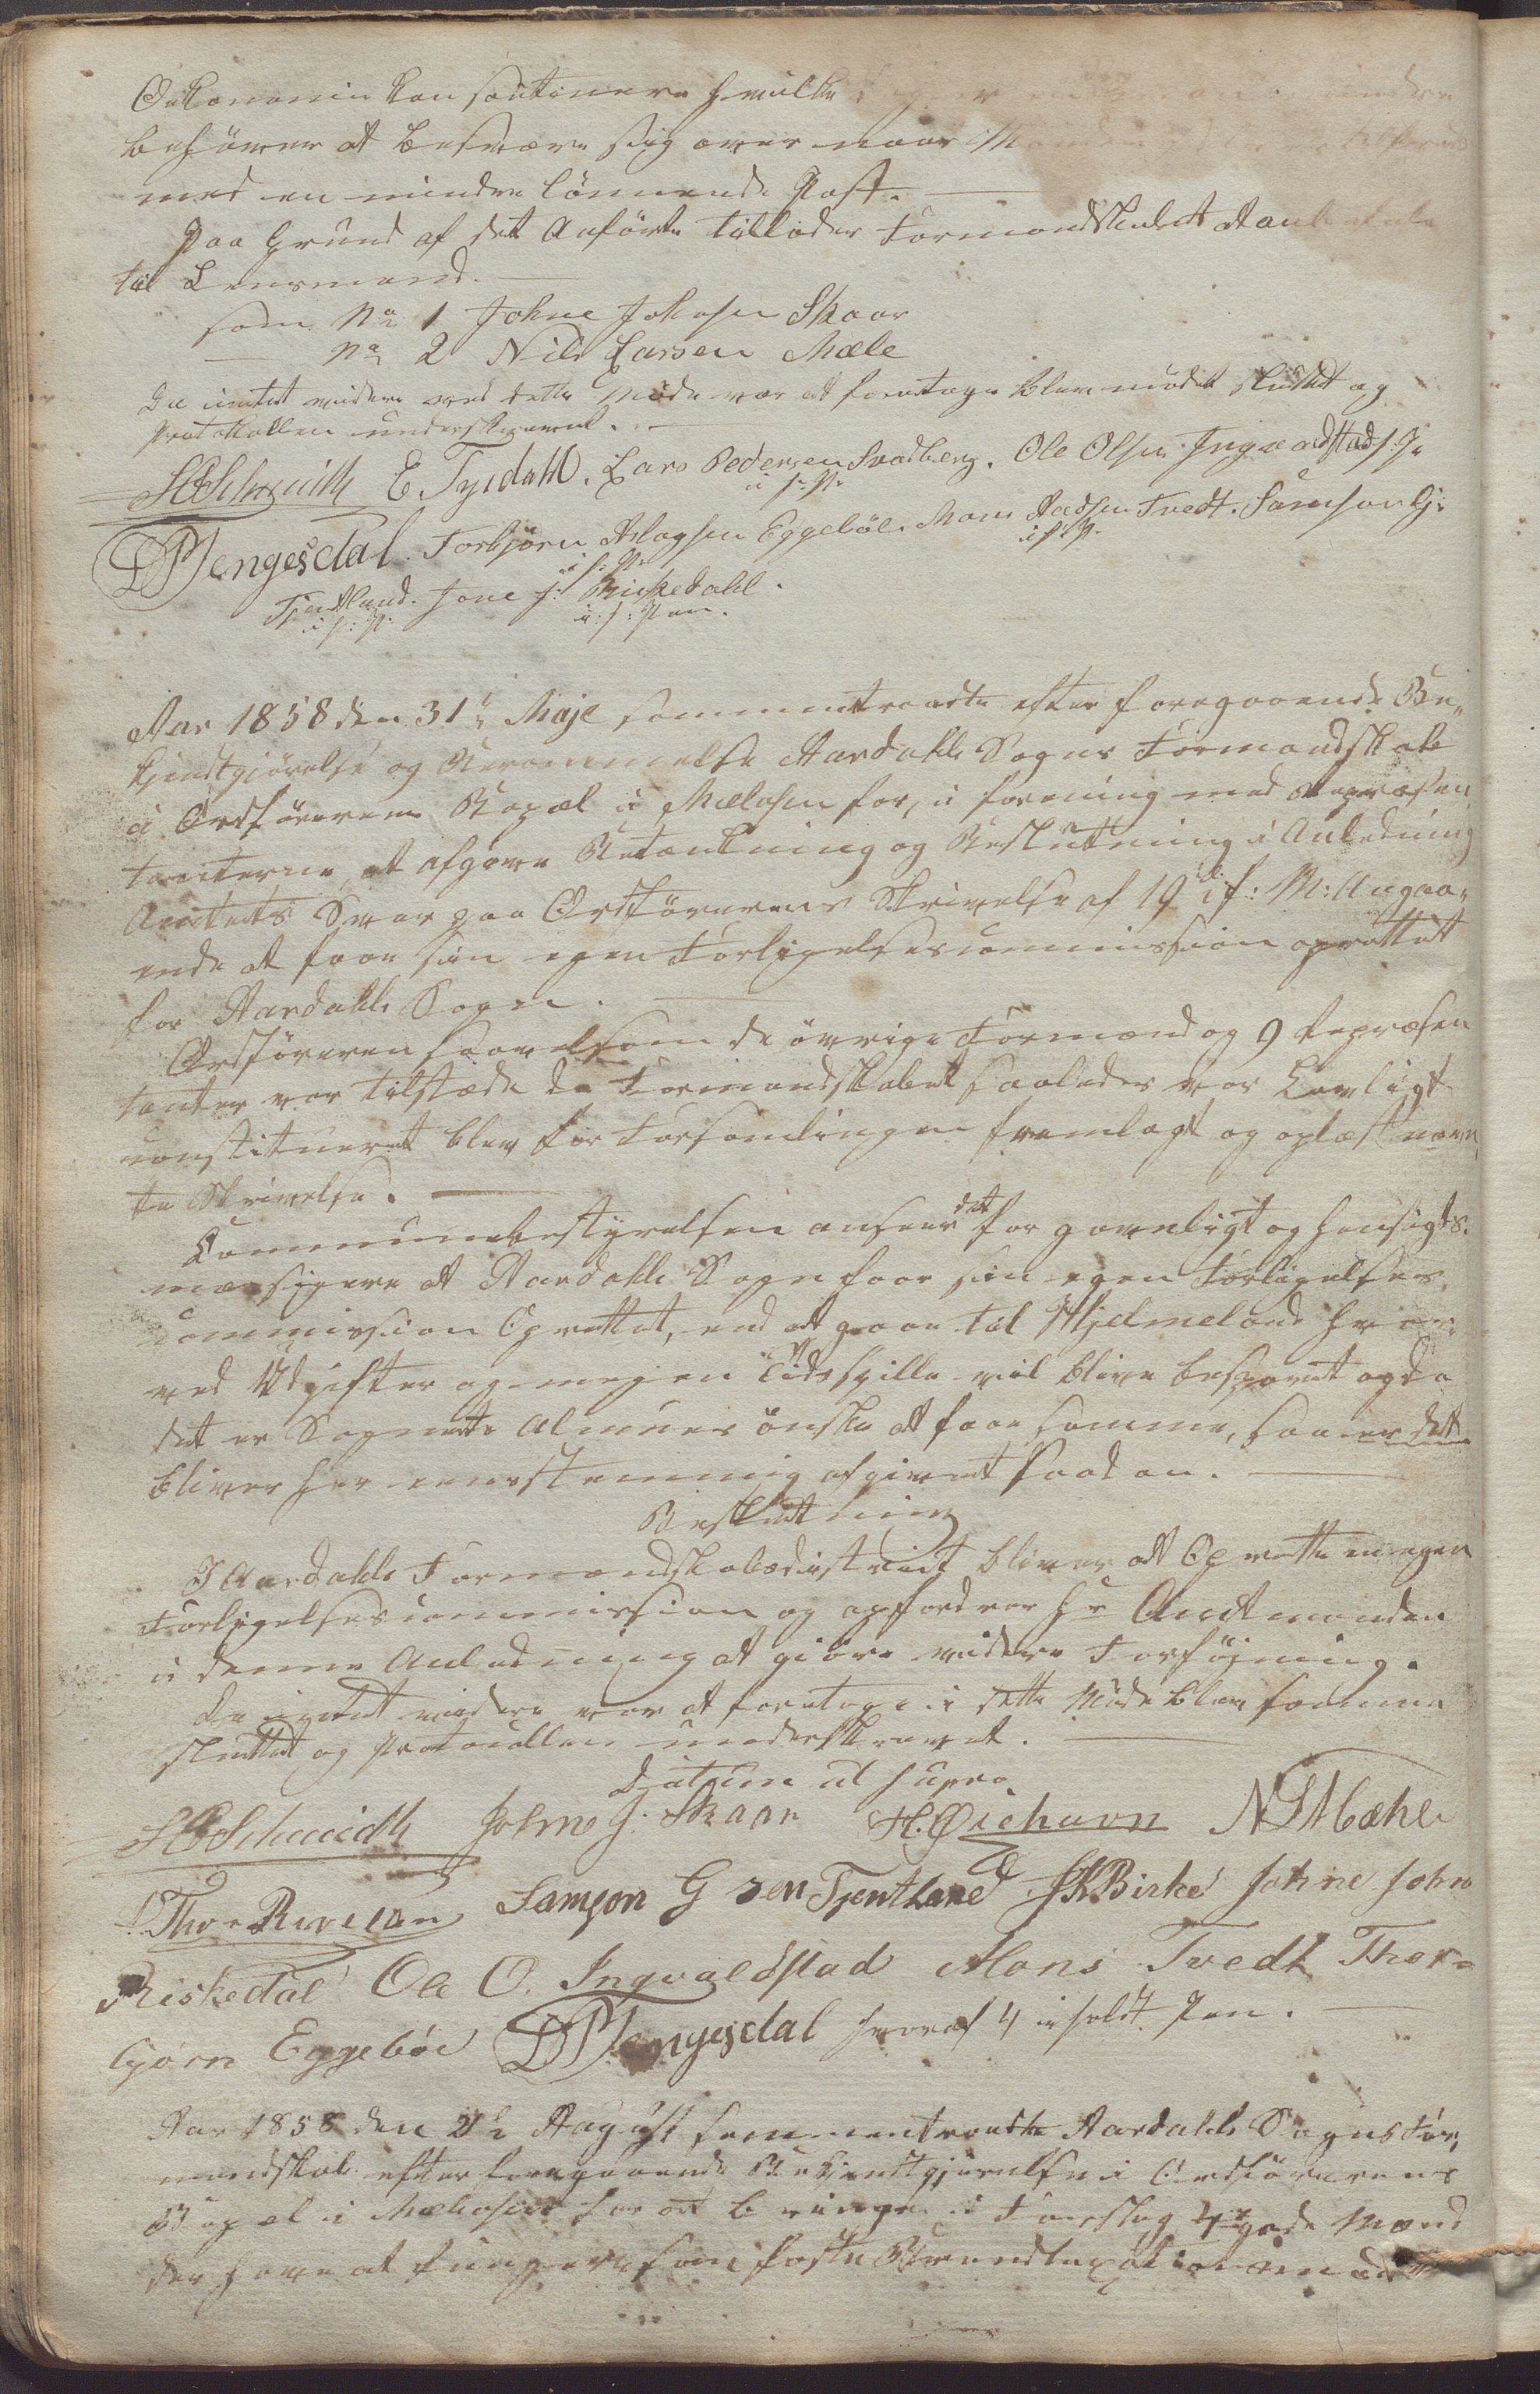 Oekonomin kan soutinere hvilken
behøver at besvære sig over naar Manden
med en mindre lønnende Post.
Paa Grund af det Anførte tillader Formandskabet at anbefale
til Lensmand.
som No 1 Johne Johnsen Skaar
— No 2 Nils Larsen Mæle
Da intet videre ved dette Møde var at foretage blev mødet sluttet og
Protokollen underskrevet.
H Schmidth E. Tysdahl. Lars Pedersen Svadberg. Ole Olsen Ingvaldstad i. f. P.
i f. P.
D P Tengesdal. Torbjørn Aslagsen Eggebøe. Mons Aadsen Tvedt. Samson G.
i f. P. i f. P.
Tjentland. Jone J. Riskedahl.
i f. P. i. f. Pen.
Aar 1858 den 31te Maje sammentraadte efter foregaaende Be„
kjendtgjørelse og Berammelse Aardahls Sogns Formandskab
i Ordførerens Bopæl i Mælosen for, i forening med Repræsen„
tanterne, at afgive Betænkning og Beslutning i Anledning
Amtets Svar paa Ordførerens Skrivelse af 19 d. i f: M: Angaa„
ende at faae sin egen Forligelsescommission oprettet
for Aardahls Sogn.
Ordføreren saavelsom de øvrige Formænd og 9 Repræsen
tanter var tilstæde da Formandskabet saaledes var Lovligt
constitueret blev for Forsamlingen fremlagt og oplæst nævn„
te Skrivelse.
Communebestyrelsen anseer det for gavnligt og hensigts„
mæssigere at Aardahls Sogn faar sin egen Forligelses„
commission Oprettet, end at gaae til Hjelmeland hvor„
ved Udgifter og megen Tidsspille vil blive besparet og da
det er Sognets Almues ønske at faae samme, saa er det
bliver her eenstemmig afgivet saadan.
Beslutning
I Aardahls Formandskabsdistrict bliver at Oprette en egen
Forligelsescommission og opfordrer Hr Amtmanden
i denne Anledning at giøre videre Forføjning.
Da intet videre var at foretage i dette Møde blev samme
sluttet og Protocollen underskrevet.
Datum ut supra
H Schmidth Johne J. Skaar H. Øiehavn N L Mæhle
Thor Rivelan Samson G sen Tjentland J K Birke Johne John
Riskedal Ole O. Ingvaldstad Mons Tvedt Thor=
bjørn Eggebøe D P Tengesdal hvoraf 4 iholdt Pen.
Aar 1858 den 2de August sammentraadte Aardahls Sogns For„
mandskab efter foregaaende Bekjendtgjørelse i Ordførerens
Bopæl i Mælosen for at bringe i Forslag 4re gode Mænd
der have at fungere som faste Brandtaxationsmænd